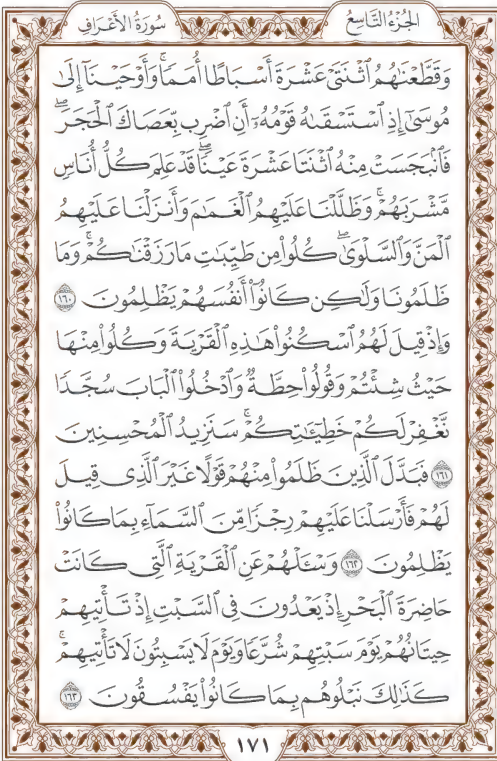 الجُزْءُ التَّاسِعُ
سُورَةُ الأَعْرَافِ
وَقَطَّعْنَٰهُمُ ٱثْنَتَىْ عَشْرَةَ أَسْبَاطًا أُمَمًا ۚ وَأَوْحَيْنَآ إِلَىٰ
مُوسَىٰٓ إِذِ ٱسْتَسْقَىٰهُ قَوْمُهُۥٓ أَنِ ٱضْرِب بِّعَصَاكَ ٱلْحَجَرَ ۖ
فَٱنۢبَجَسَتْ مِنْهُ ٱثْنَتَا عَشْرَةَ عَيْنًا ۖ قَدْ عَلِمَ كُلُّ أُنَاسٍ
مَّشْرَبَهُمْ ۚ وَظَلَّلْنَا عَلَيْهِمُ ٱلْغَمَٰمَ وَأَنزَلْنَا عَلَيْهِمُ
ٱلْمَنَّ وَٱلسَّلْوَىٰ ۖ كُلُوا۟ مِن طَيِّبَٰتِ مَا رَزَقْنَٰكُمْ ۚ وَمَا
ظَلَمُونَا وَلَٰكِن كَانُوٓا۟ أَنفُسَهُمْ يَظْلِمُونَ ١٦٠
وَإِذْ قِيلَ لَهُمُ ٱسْكُنُوا۟ هَٰذِهِ ٱلْقَرْيَةَ وَكُلُوا۟ مِنْهَا
حَيْثُ شِئْتُمْ وَقُولُوا۟ حِطَّةٌ وَٱدْخُلُوا۟ ٱلْبَابَ سُجَّدًا
نَّغْفِرْ لَكُمْ خَطِيٓـَٰٔتِكُمْ ۚ سَنَزِيدُ ٱلْمُحْسِنِينَ
١٦١ فَبَدَّلَ ٱلَّذِينَ ظَلَمُوا۟ مِنْهُمْ قَوْلًا غَيْرَ ٱلَّذِى قِيلَ
لَهُمْ فَأَرْسَلْنَا عَلَيْهِمْ رِجْزًا مِّنَ ٱلسَّمَآءِ بِمَا كَانُوا۟
يَظْلِمُونَ ١٦٢ وَسْـَٔلْهُمْ عَنِ ٱلْقَرْيَةِ ٱلَّتِى كَانَتْ
حَاضِرَةَ ٱلْبَحْرِ إِذْ يَعْدُونَ فِى ٱلسَّبْتِ إِذْ تَأْتِيهِمْ
حِيتَانُهُمْ يَوْمَ سَبْتِهِمْ شُرَّعًا وَيَوْمَ لَا يَسْبِتُونَ لَا تَأْتِيهِمْ ۚ
كَذَٰلِكَ نَبْلُوهُم بِمَا كَانُوا۟ يَفْسُقُونَ ١٦٣
١٧١